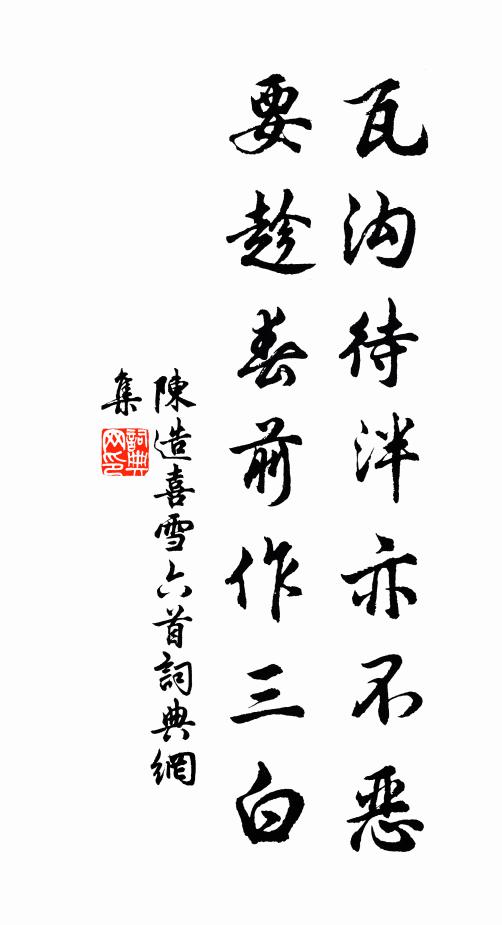 瓦沟待泮亦不惡
要趁春前作三白
陳造喜雪六首詞典網
集
詞典
网印